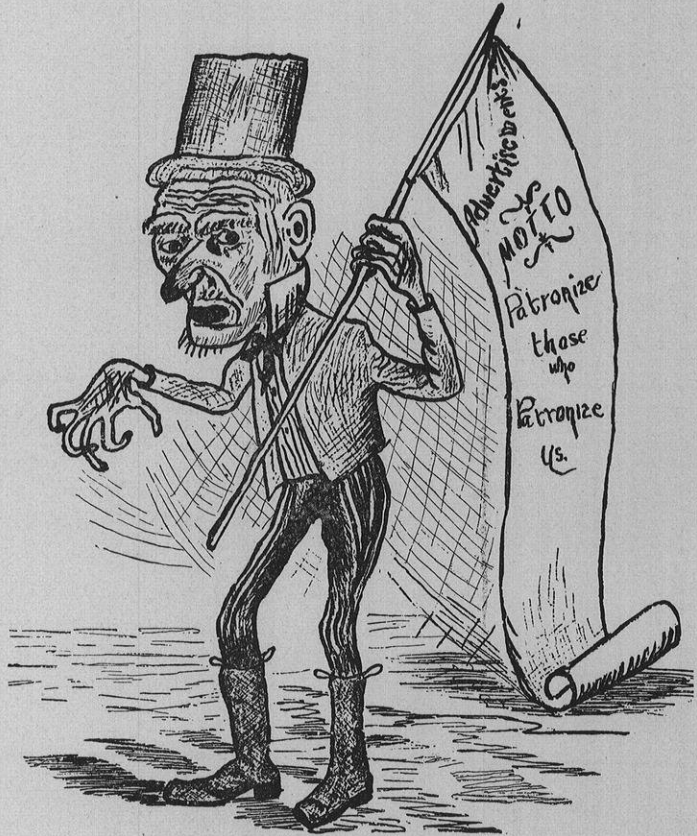 Advertisements
MOTTO
Patronize
those
who
Patronize
Us.